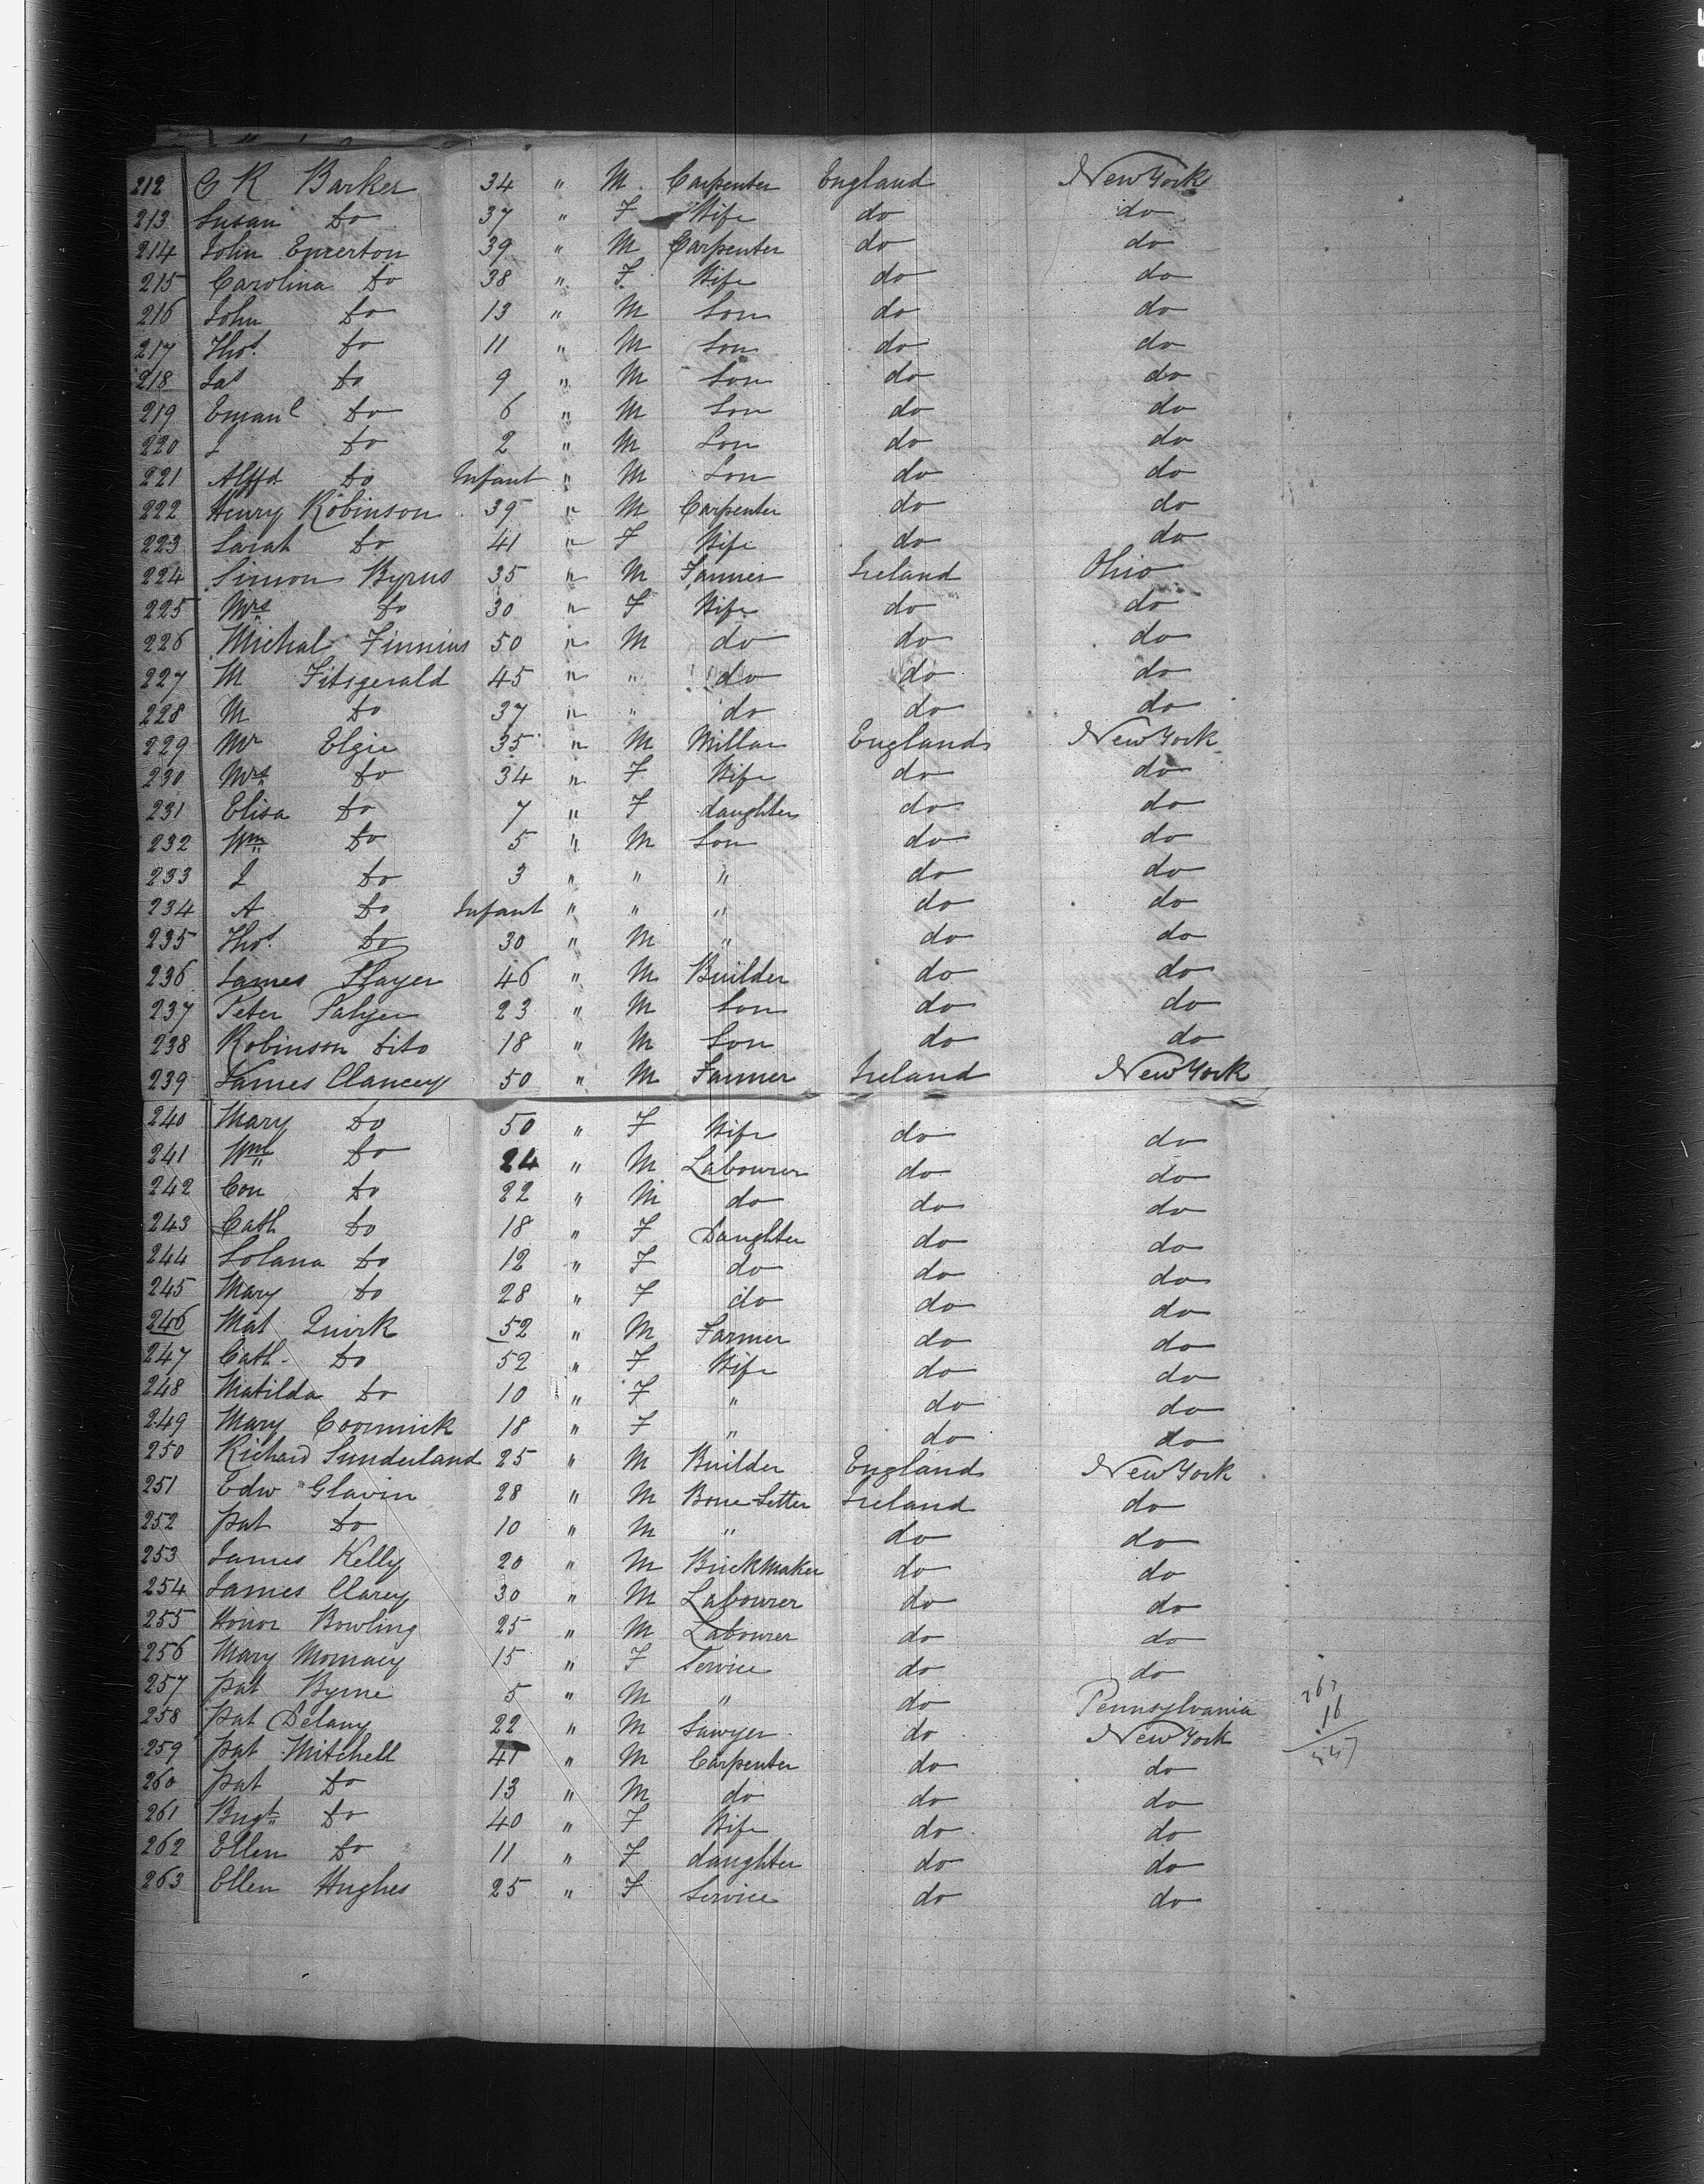 212 G R Barker 34 " M. Carpenter England New York
213 Susan Do 37 " F Wife do do
214 John Emerton 39 " M Carpenter do do
215 Carolina Do 38 " F. Wife do do
216 John Do 13 " M Son do do
217 Thos. Do 11 " M Son do do
218 Jas Do 9 " M Son do do
219 Emanl Do 6 " M Son do do
220 J Do 2 " M Son do do
221 Alffd Do Infant " M Son do do
222 Henry Robinson 39 " M Carpenter do do
223 Sarah Do 41 " F Wife do do
224 Simon Byrns 35 " M Farmer Ireland Ohio
225 Mrs Do 30 " F Wife do do
226 Michal Finnius 50 " M do do do
227 M Fitsgerald 45 " " do do do
228 M Do 37 " " do do do
229 Mr Elgie 35 " M Millar England New York
230 Mrs Do 34 " F Wife do do
231 Elisa Do 7 " F daughter do do
232 Wm Do 5 " M Son do do
233 J Do 3 " " " do do
234 A Do Infant " " " do do
235 Thos. Do 30 " M " do do
236 James Slayer 46 " M Builder do do
237 Peter Salyer 23 " M Son do do
238 Robinson Dito 18 " M Son do do
239 James Clancey 50 " M Farmer Ireland New York
240 Mary Do 50 " F Wife do do
241 Wm Do 24 " M Labourer do do
242 Con Do 22 " M do do do
243 Cath Do 18 " F Daughter do do
244 Solana Do 12 " F do do do
245 Mary Do 28 " F do do do
246 Mat Quirk 52 " M Farmer do do
247 Cath. Do 52 " F Wife do do
248 Matilda Do 10 " F " do do
249 Mary Coormick 18 " F " do do
250 Richard Sunderland 25 " M Builder England New York
251 Edw Glavin 28 " M Bone Setter Ireland do
252 Pat Do 10 " M " do do
253 James Kelly 20 " M Brickmaker do do
254 James Clarey 30 " M Labourer do do
255 Honor Bowling 25 " M Labourer do do
256 Mary 15 " F Service do do
257 Pat Byrne 5 " M " do Pennsylvania
258 Pat Delany 22 " M Sawyer do New York
259 Pat Mitchell 41 " M Carpenter do do
260 Pat Do 13 " M do do do
261 Brigt Do 40 " F Wife do do
262 Ellen Do 11 " F daughter do do
263 Ellen Hughes 25 " F Service do do
263
16
247